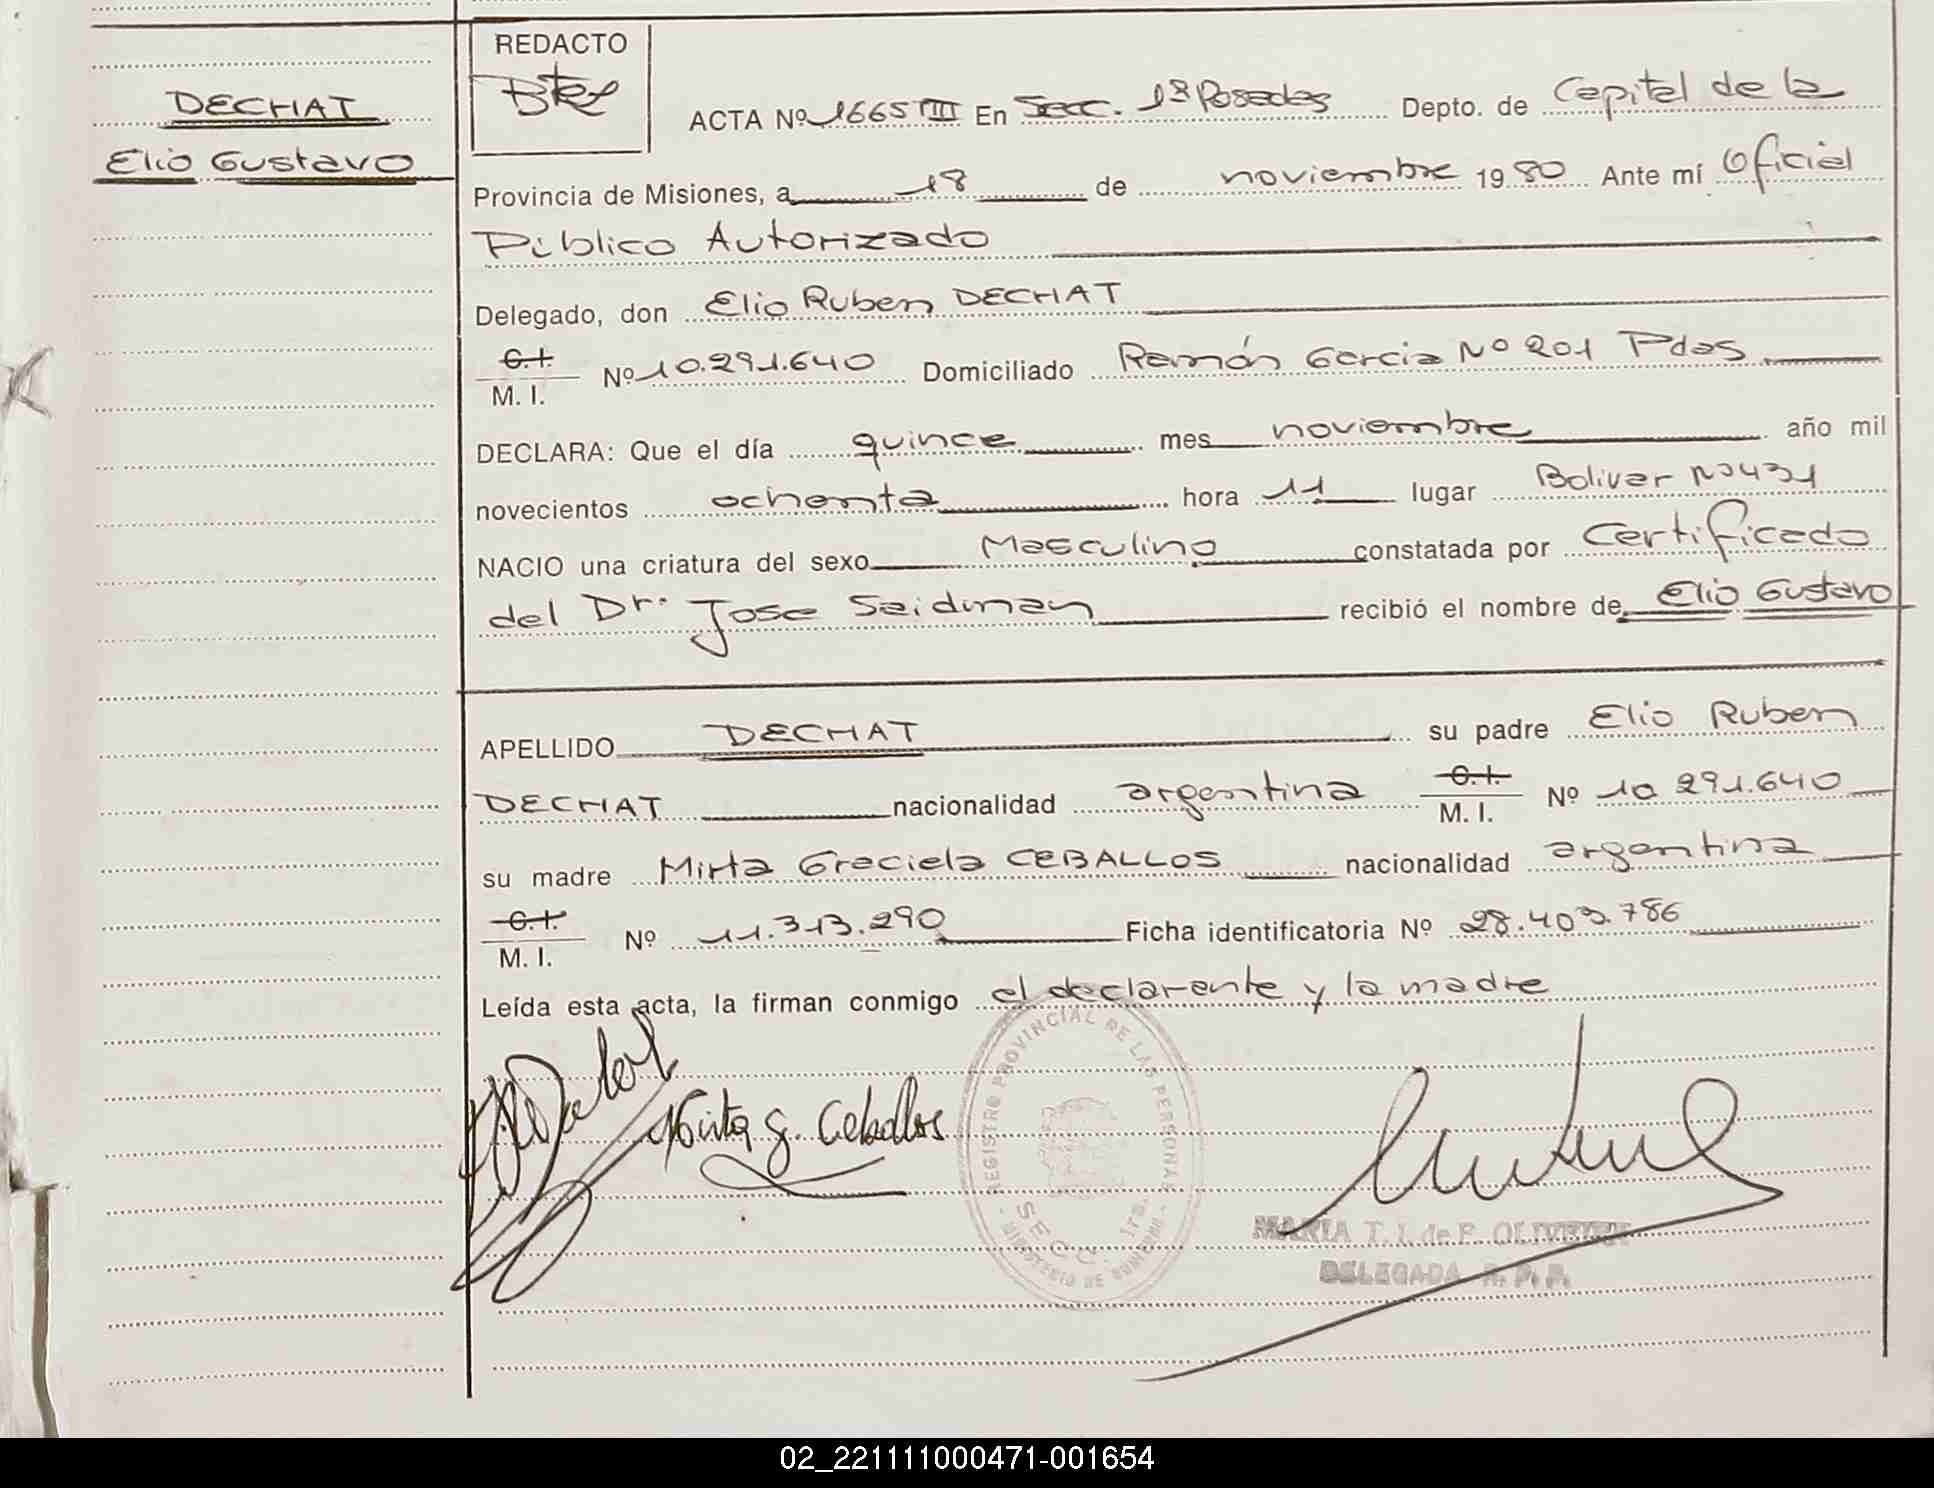 DECHAT
Elio Gustavo
REDACTO
ACTA Nº 1665 III En Secc. 1ª Posadas Depto. de Capital de la
Provincia de Misiones, a 18 de noviembre 1980 Ante mí Oficial
Público Autorizado
Delegado, don Elio Ruben DECHAT
C.I.
M. I. Nº 10.291.640 Domiciliado Ramón Garcia Nº 201 Pdas
DECLARA: Que el día quince mes noviembre año mil
novecientos ochenta hora 11 lugar Bolivar Nº 431
NACIO una criatura del sexo Masculino constatada por Certificado
del Dr. Jose Seidman recibió el nombre de Elio Gustavo
APELLIDO DECHAT su padre Elio Ruben
DECHAT nacionalidad argentina C.I. M. I. Nº 10 291.640
su madre Mirta Graciela CEBALLOS nacionalidad argentina
C.I.
M. I. Nº 11.313.290 Ficha identificatoria Nº 28.409.786
Leída esta acta, la firman conmigo el declarante y la madre
Mirta G. Ceballos
REGISTRO PROVINCIAL DE LAS PERSONAS
SECC. 1ra.
MINISTERIO DE GOBIERNO
MARIA T. I. de F. OLIVEYRA
DELEGADA R. P. P.
02_221111000471-001654